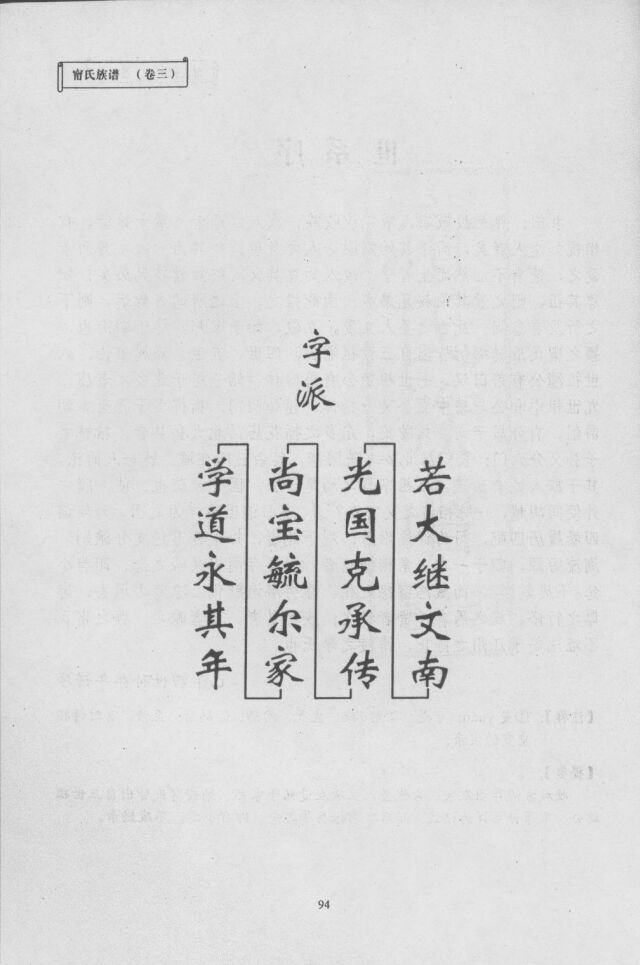 甯氏族谱 （卷三）
字派
若大继文南
光国克承传
尚宝毓尔家
学道永其年
94